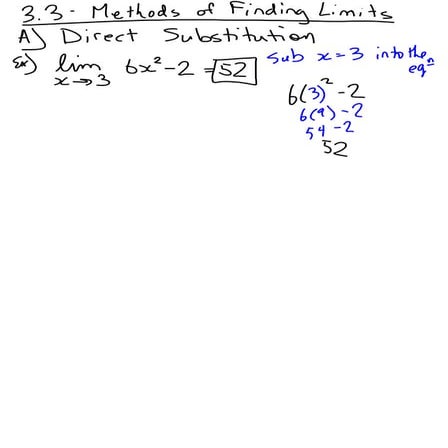 3.3 - Methods of Finding Limits
A) Direct Substitution
Ex) lim x→3 6x² - 2 = 52
Sub x = 3 into the eqⁿ
6(3)² - 2
6(9) - 2
54 - 2
52